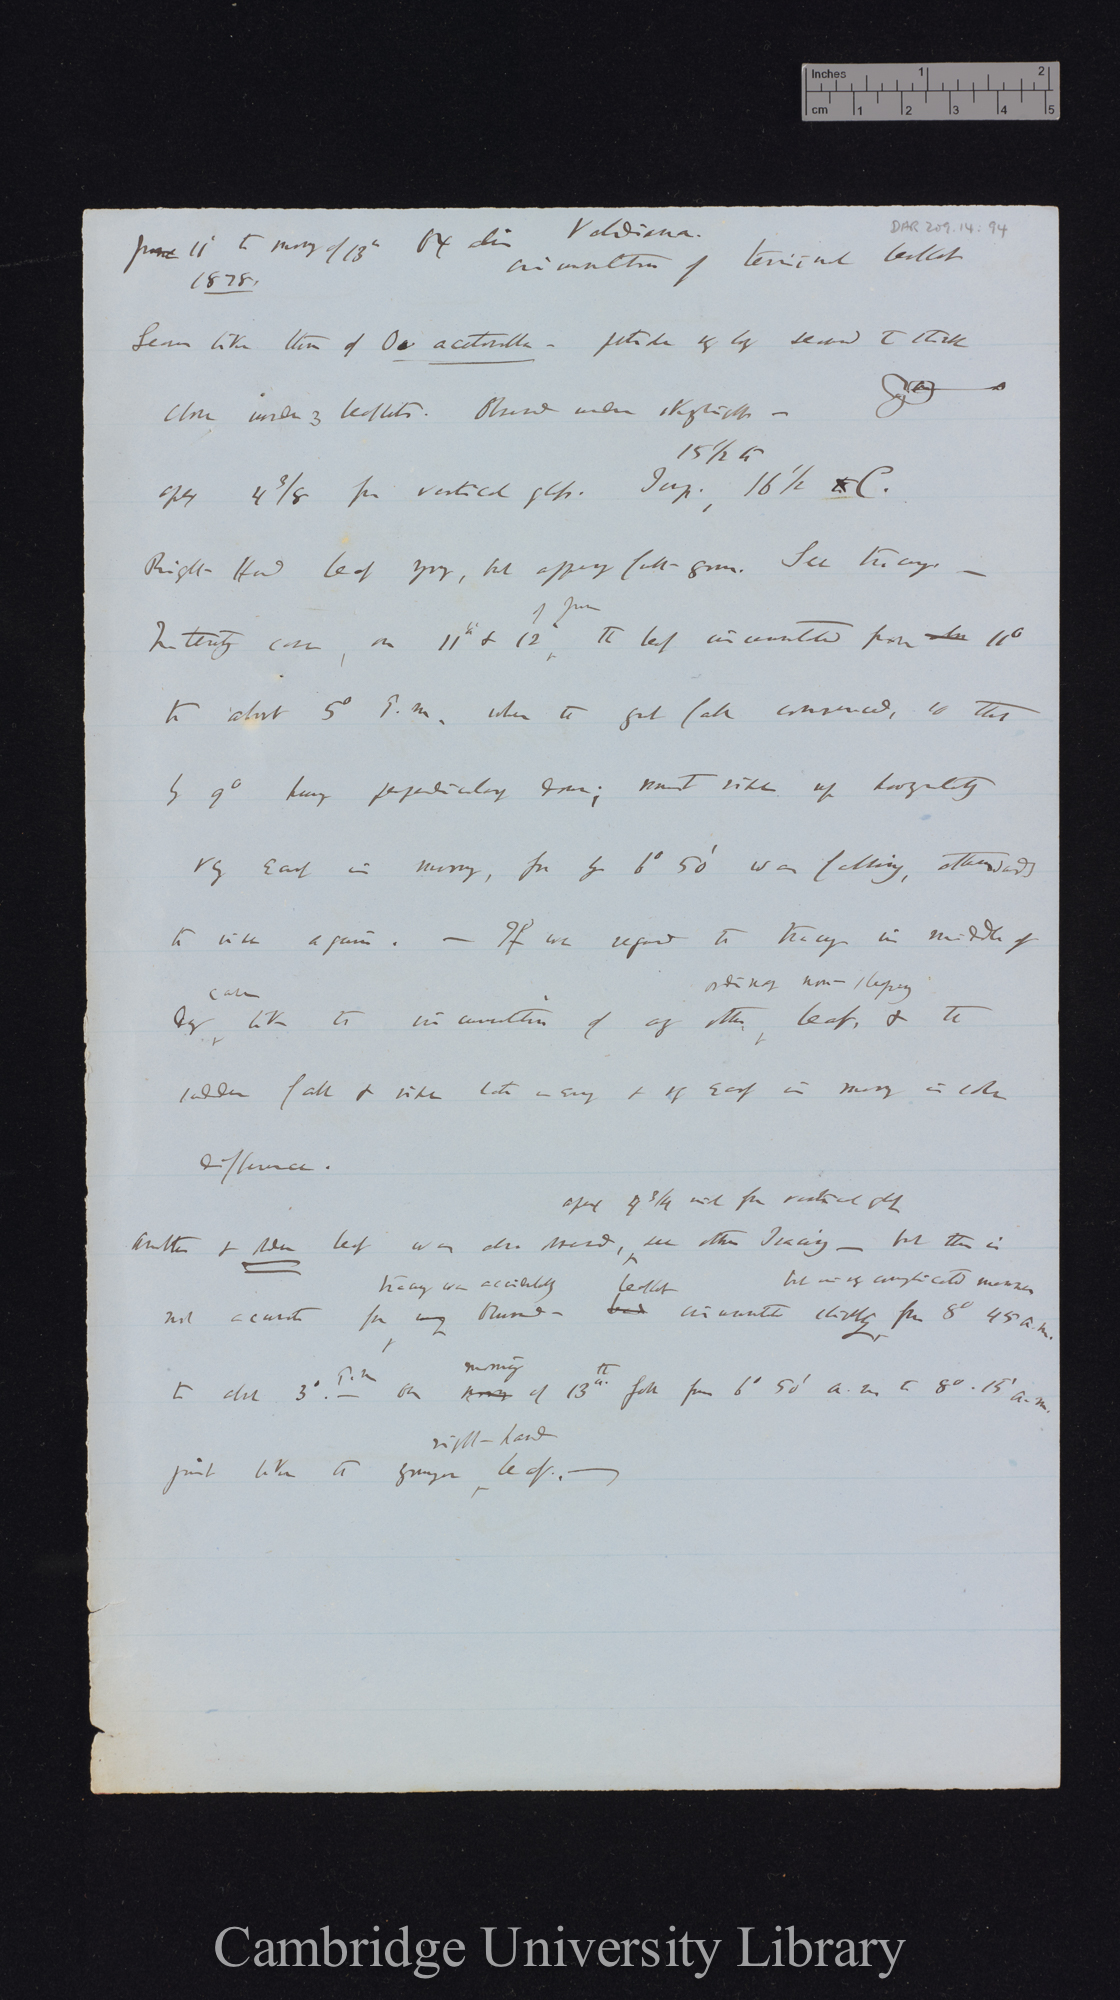 Inches 1 2
cm 1 2 3 4 5
DAR 209.14: 94
June 11 to morng of 13th Oxalis Valdiviana.
1878.
circumnutation of terminal leaflet
Leaves like those of Ox acetosella – petiole by secured to stick
close under 3 leaflets. Observed under skylight –
15 1/2 to
apex 4 3/8 from vertical glass. Temp. 16 1/2 C.
Right Hand leaf young, but apparently full-grown. See tracing –
of June
case, on 11th & 12, the leaf circumnutated from 11°
to about 5° P.m. when the great fall commenced, so that
by 9° hung perpendicularly down; must rise up horizontally
very early in morng, for by 6° 50' was falling, afterwards
to rise again. – If we regard the tracing in middle of
ordinary non-sleeping
day like the circumnutation of any other leaf, & the
sudden fall & rise late in eveng & very early in morng is sole
difference.
apex 4 3/4 inch from vertical glass
Another & older leaf was also traced, see other Tracing – but this is
tracing was accidentally leaflet but in very complicated manner
not accurate for observed – circumnutated slightly from 8° 45 a.m.
morning
to about 3°. P.m on of 13th fell from 6° 50' a.m to 8°. 15' a.m.
right-hand
just like the younger leaf. –
Cambridge University Library